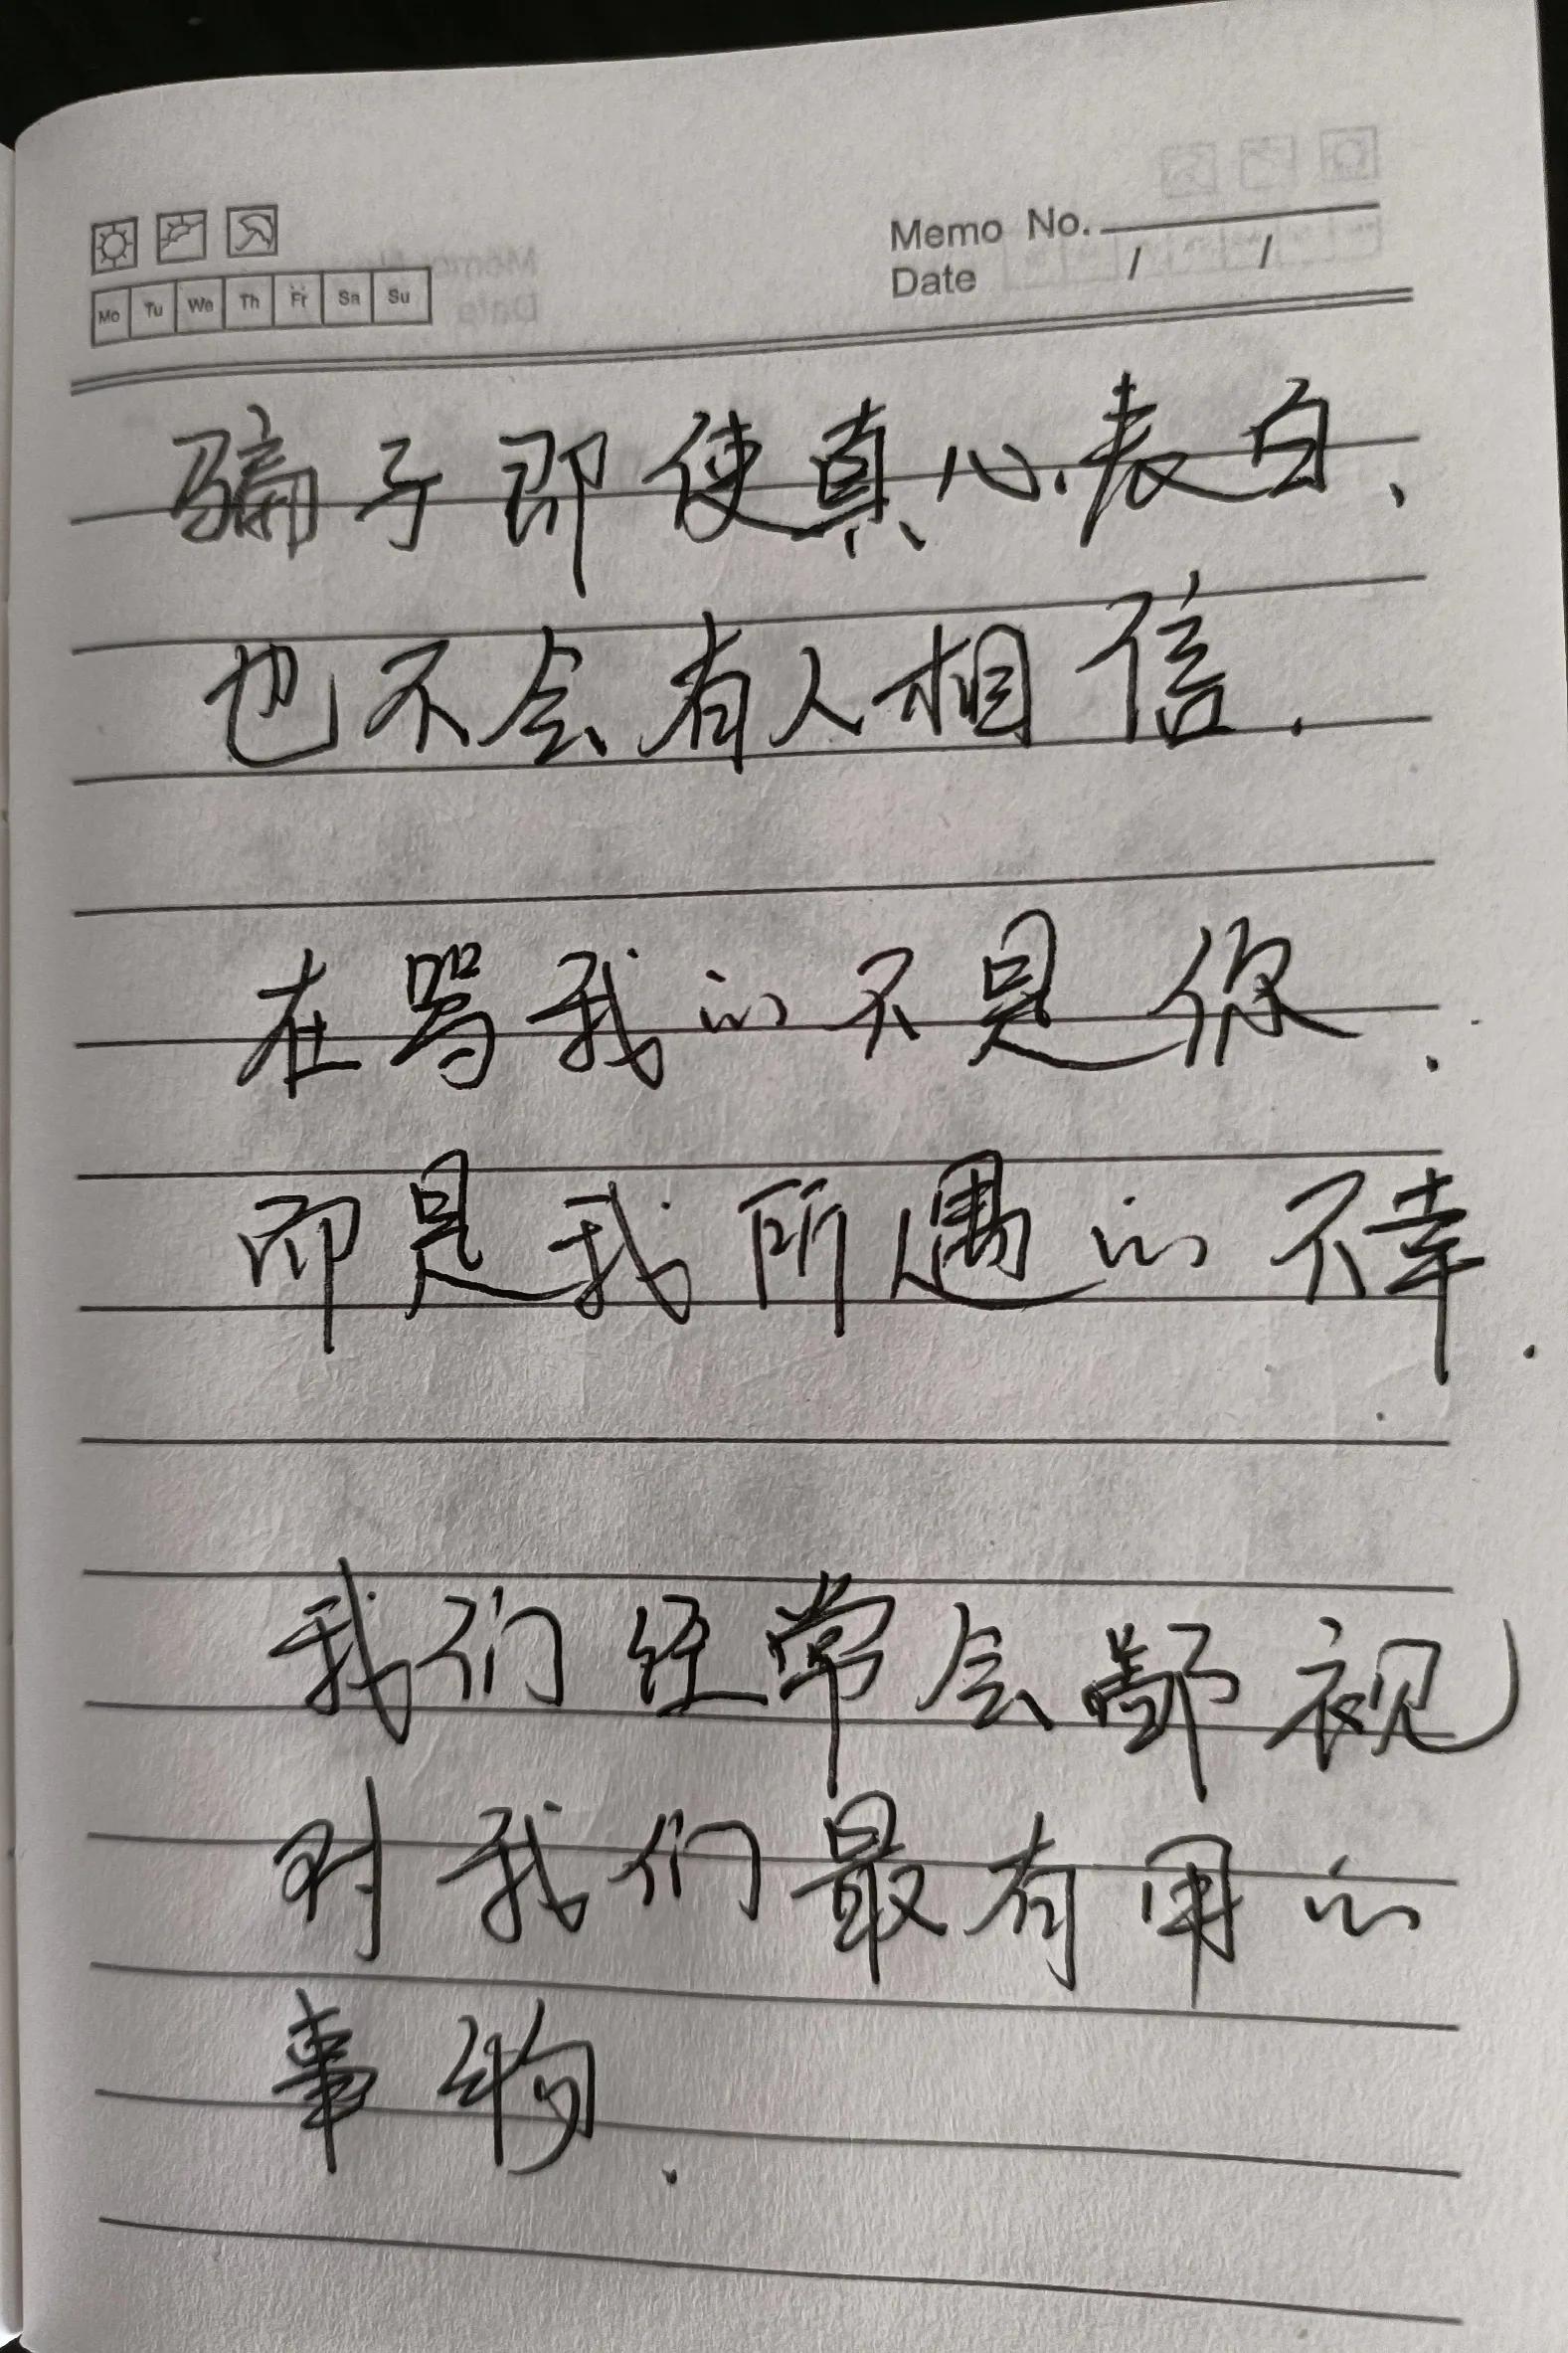 Memo No.
Date / /
Mo Tu We Th Fr Sa Su
骗子即使真心表白、
也不会有人相信.
在骂我的不是你.
而是我所遇的不幸.
我们经常会鄙视
对我们最有用的
事物.